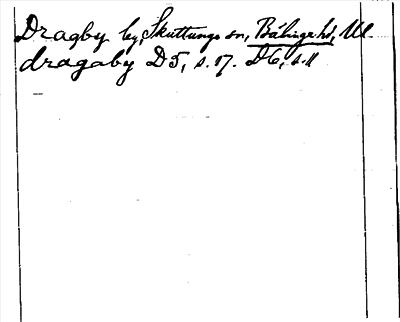 Dragby by, Skuttunge sn, Bälinge hd, Upl.
dragaby D5, s. 17. D6, s. 11